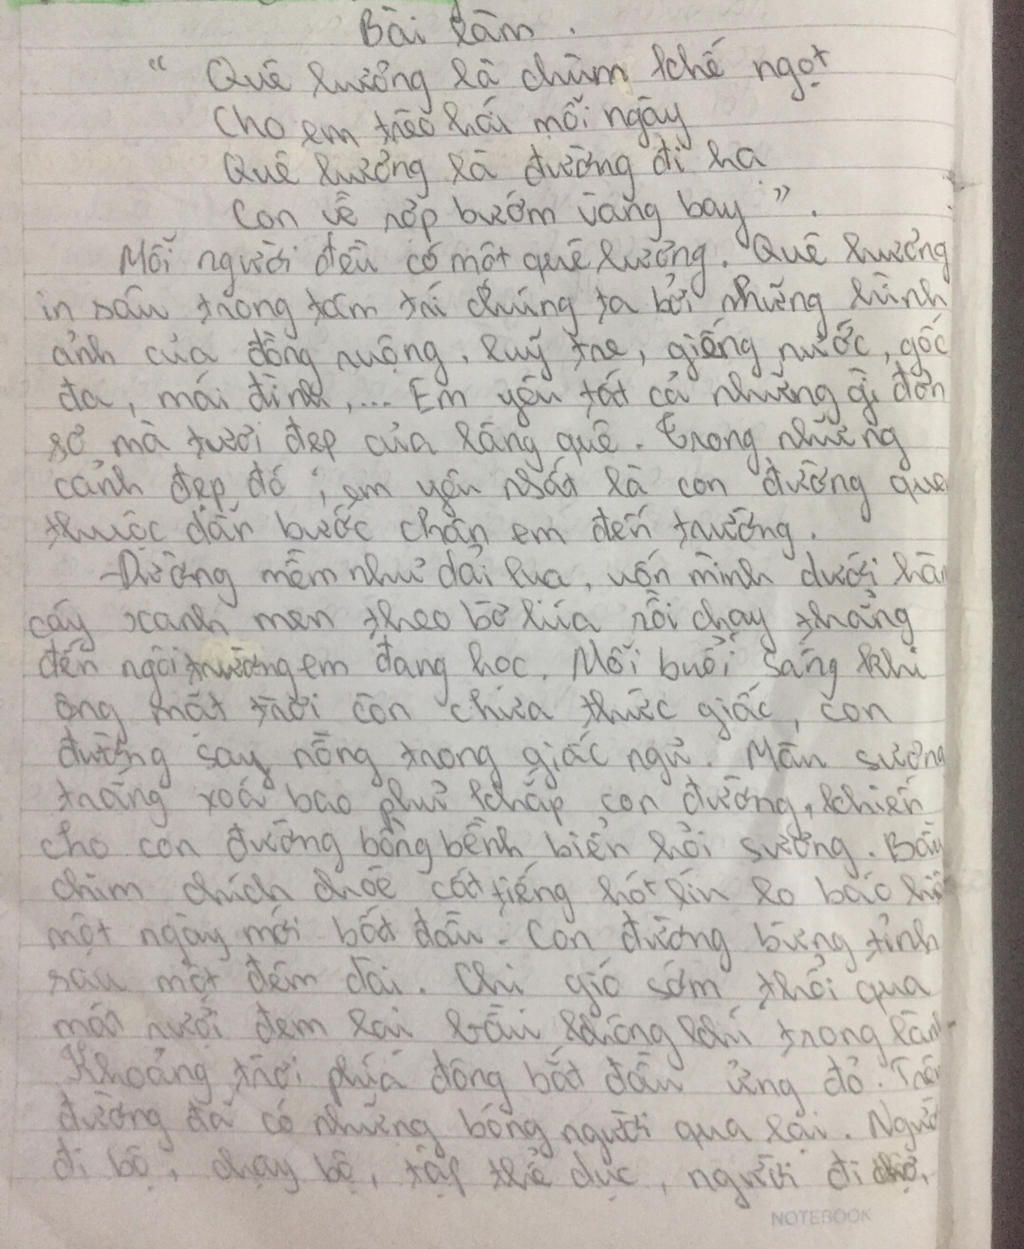 Bài làm.
“ Quê hương là chùm khế ngọt
Cho em trèo hái mỗi ngày
Quê hương là đường đi hạ
Con về rợp bướm vàng bay ”.
Mỗi người đều có một quê hương. Quê hương
in sâu trong tâm trí chúng ta bởi những hình
ảnh của đồng ruộng, luỹ tre, giếng nước, gốc
đa, mái đình,... Em yêu tất cả những gì đơn
sơ mà tươi đẹp của làng quê. Trong những
cảnh đẹp đó, em yêu nhất là con đường que
thuộc dẫn bước chân em đến trường.
Đường mềm như dải lụa, uốn mình dưới hàn
cây xanh men theo bờ lúa rồi chạy thẳng
đến ngôi trường em đang học. Mỗi buổi sáng khi
ông mặt trời còn chưa thức giấc, con
đường say nồng trong giấc ngủ. Màn sương
trắng xoá bao phủ khắp con đường, khiến
cho con đường bồng bềnh biển hơi sương. Bầy
chim chích choè cất tiếng hót lín lo báo hiệ
một ngày mới bắt đầu. Con đường bừng tỉnh
sau một đêm dài. Chị gió sớm thổi qua
mát rượi đem lại bầu không khí trong làn
Khoảng trời phía đông bắt đầu ửng đỏ. Trên
đường đã có những bóng người qua lại. Ngườ
đi bộ, chạy bộ, tập thể dục, người đi chợ,
NOTEBOOK